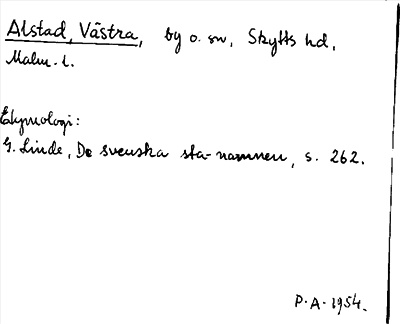 Alstad, Västra, by o. sn, Skytts hd,
Malm. l.
Etymologi:
G. Linde, De svenska sta-namnen, s. 262.
P.A. 1954.